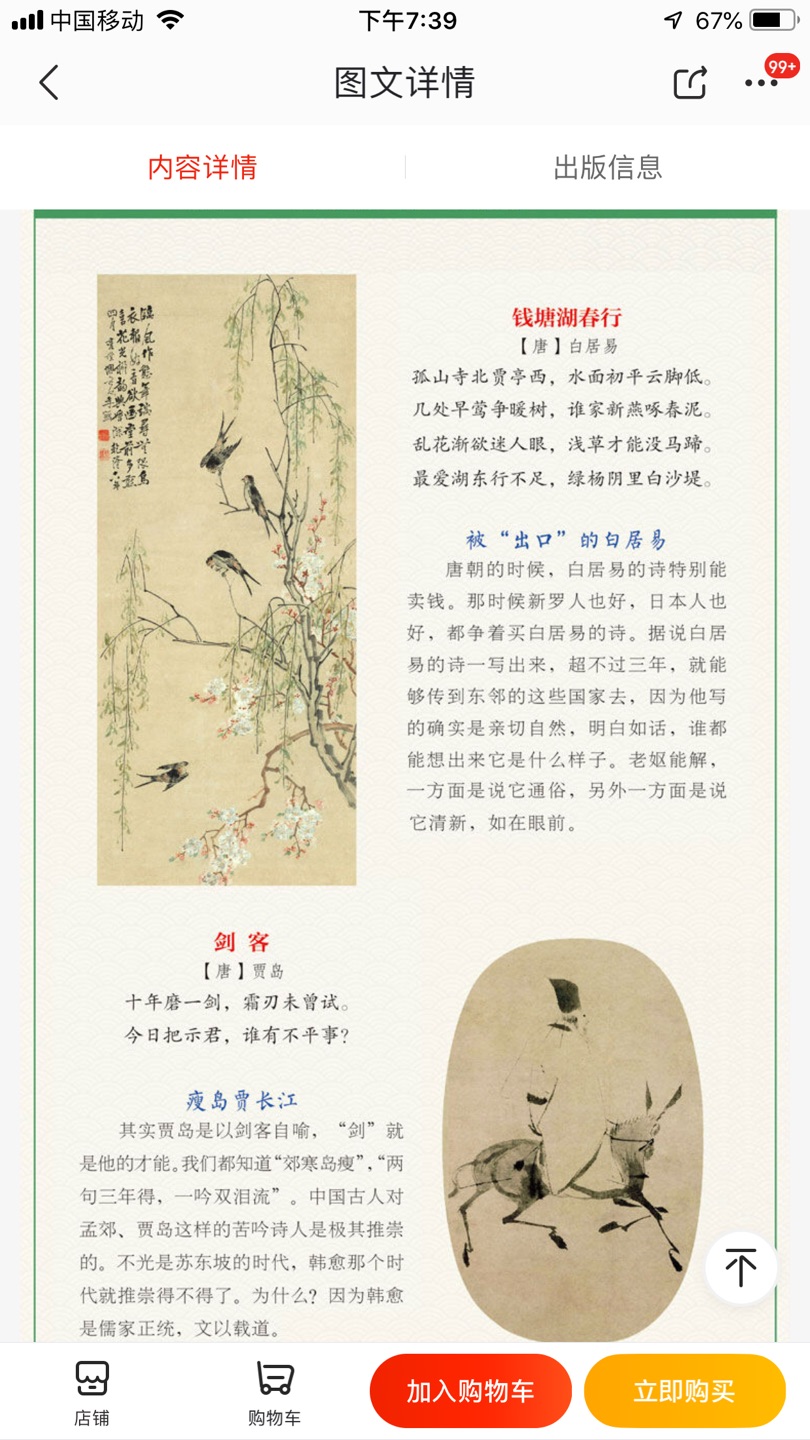 中国移动
下午7:39
67%
图文详情
99+
内容详情
出版信息
钱塘湖春行
【唐】白居易
孤山寺北贾亭西，水面初平云脚低。
几处早莺争暖树，谁家新燕啄春泥。
乱花渐欲迷人眼，浅草才能没马蹄。
最爱湖东行不足，绿杨阴里白沙堤。
被“出口”的白居易
唐朝的时候，白居易的诗特别能
卖钱。那时候新罗人也好，日本人也
好，都争着买白居易的诗。据说白居
易的诗一写出来，超不过三年，就能
够传到东邻的这些国家去，因为他写
的确实是亲切自然，明白如话，谁都
能想出来它是什么样子。老妪能解，
一方面是说它通俗，另外一方面是说
它清新，如在眼前。
剑 客
【唐】贾岛
十年磨一剑，霜刃未曾试。
今日把示君，谁有不平事？
瘦岛贾长江
其实贾岛是以剑客自喻，“剑”就
是他的才能。我们都知道“郊寒岛瘦”，“两
句三年得，一吟双泪流”。中国古人对
孟郊、贾岛这样的苦吟诗人是极其推崇
的。不光是苏东坡的时代，韩愈那个时
代就推崇得不得了。为什么？因为韩愈
是儒家正统，文以载道。
店铺
购物车
加入购物车
立即购买